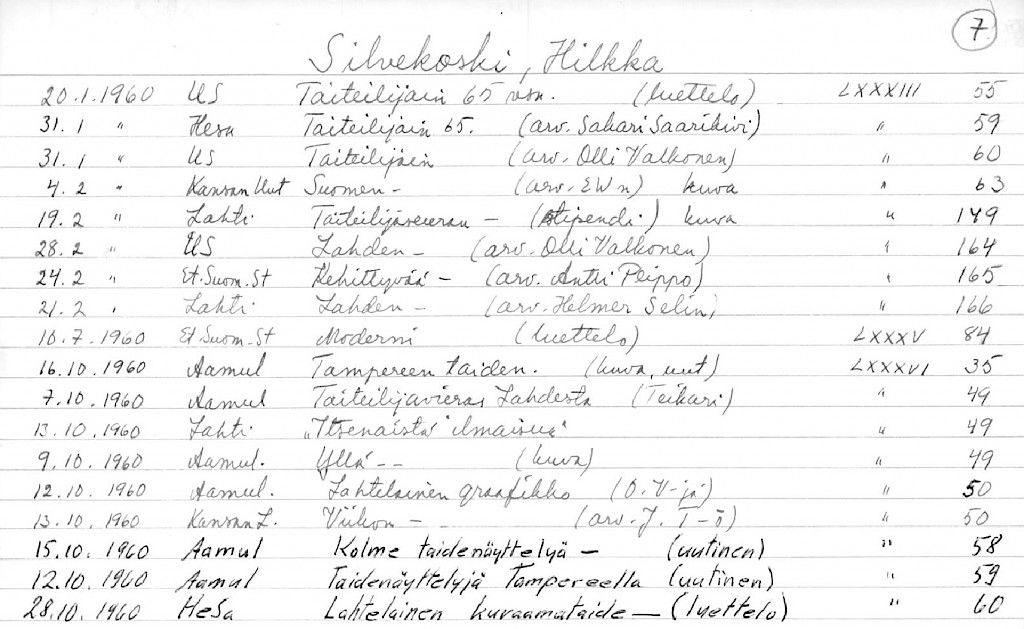 7
Silvekoski, Hilkka
20.1.1960 US Taiteilijain 65 vsn. (luettelo) LXXXIII 55
31.1 " Hesa Taiteilijain 65. (arv. Sakari Saarikivi) " 59
31.1 " US Taiteilijain (arv. Olli Valkonen) " 60
4.2 " Kansan Uut Suomen - (arv. EWn) kuva " 63
19.2 " Lahti Taiteilijaseuran - (stipendi) kuva " 149
28.2 " US Lahden - (arv. Olli Valkonen) " 164
24.2 " Et.Suom.St Kehittyvää - (arv. Antti Peippo) " 165
21.2 " Lahti Lahden - (arv. Helmer Selin) " 166
10.7.1960 Et.Suom.St Moderni (luettelo) LXXXV 84
16.10.1960 Aamul Tampereen taiden. (kuva, uut) LXXXVI 35
7.10.1960 Aamul Taiteilijavieras Lahdesta (Teikari) " 49
13.10.1960 Lahti "Itsenäistä ilmaisua" " 49
9.10.1960 Aamul. Yllä -- (kuva) " 49
12.10.1960 Aamul. Lahtelainen graafikko (O.V-jä) " 50
13.10.1960 Kansan L. Viikon - (arv. J. T-ö) " 50
15.10.1960 Aamul Kolme taidenäyttelyä - (uutinen) " 58
12.10.1960 Aamul Taidenäyttelyjä Tampereella (uutinen) " 59
28.10.1960 HeSa Lahtelainen kuvaamataide - (luettelo) " 60